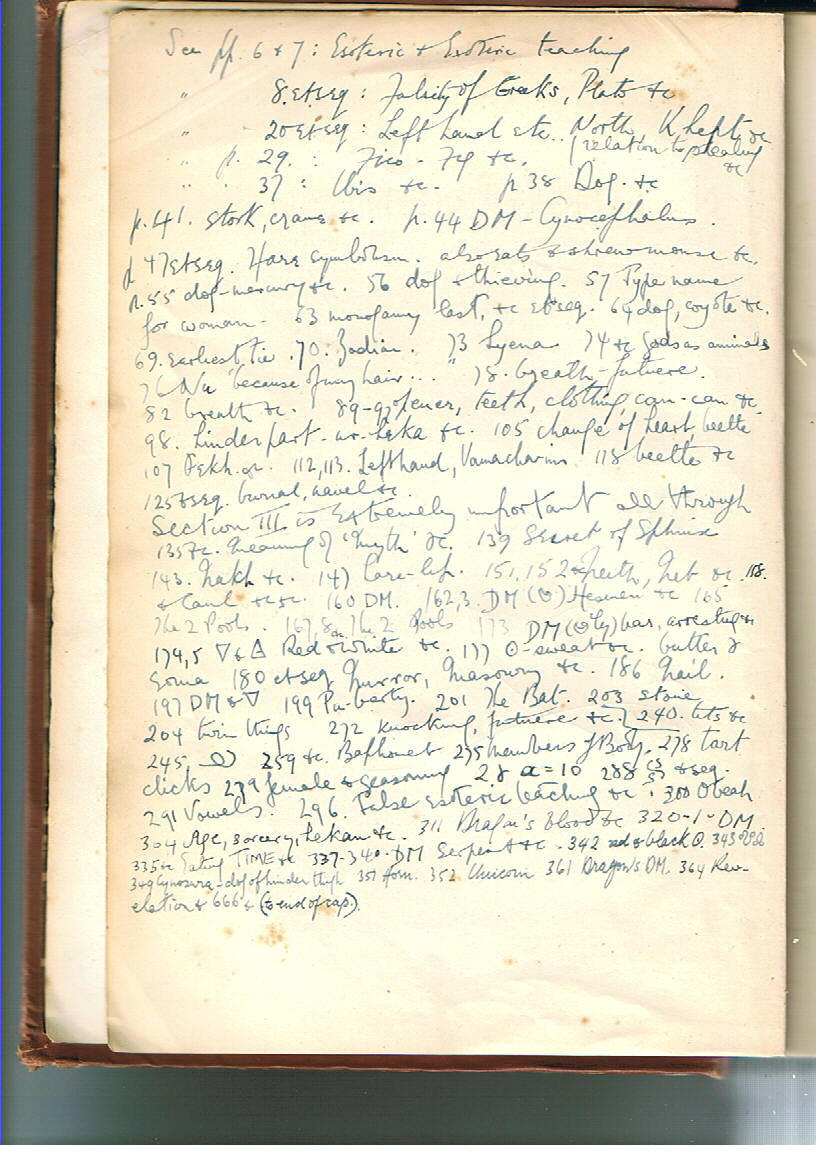 See pp. 6 & 7 : Esoteric & Exoteric teaching
" 8. et seq : Falsity of Greeks, Plato &c
" 20 et seq : Left hand etc. North, Khept, &c
" p. 29. : Fico - Fig &c. (relation to stealing &c
" " 37 : Ibis &c. p 38 Dog. &c
p. 41. stork, crane &c. p. 44 DM - Cynocephalus.
p 47 et seq. Hare symbolism. also cats & shrewmouse &c.
p. 55 dog - mercury &c. 56 dog & thieving. 57 Type name
for woman - 63 monogamy last, &c et seq. 64 dog, coyote &c.
69. Earliest tie. 70. Zodiac. 73 Hyena 74 &c Gods as animals
76 Nu 'because of my hair... " 78. breath - futuere.
82 breath &c. 89-97 opener, teeth, clothing can-can &c
98. hinderpart - ur-heka &c. 105 change of heart, beetle
107 Pekh. 112, 113. Left hand, Vamacharins 118 beetle &c
125 et seq. burial, navel &c.
Section III is Extremely important all through
135 &c. Meaning of 'Myth' &c. 139 Secret of Sphinx
143. Nakh &c. 147 Care-life. 151, 152 & Neith, Net &c. 158.
& Caul &c &c. 160 DM. 162,3. DM (ʘ) Heaven &c 165
The 2 Pools. 167,8 The 2 Pools 173 DM bar, arresting &c
174,5 ▽ & △ Red & White &c. 177 ʘ-sweat &c. butter &
Soma 180 et seq Mirror, Masonry &c. 186 Nail.
197 DM & ▽ 199 Pu-berty. 201 The Bat. 203 stone
204 twin things 272 knocking, futuere &c. 240. tits &c
245, 259 &c. Baphomet 275 members of Body. 278 tart
clicks 279 female & seasoning 28 a = 10 288 & seq.
291 Vowels. 296. False esoteric teaching &c. 300 Obeah
304 Age, sorcery, hekau &c. 311 Dragon's Blood &c 320-1- DM
335 &c Eating TIME &c 337-340- DM Serpent &c - 342 red & black 343
349 Cynosura - dog of hinder thigh 351 horn. 352 Unicorn 361 Dragons DM. 364 Rev-
elation & 666 & (to end of cap).